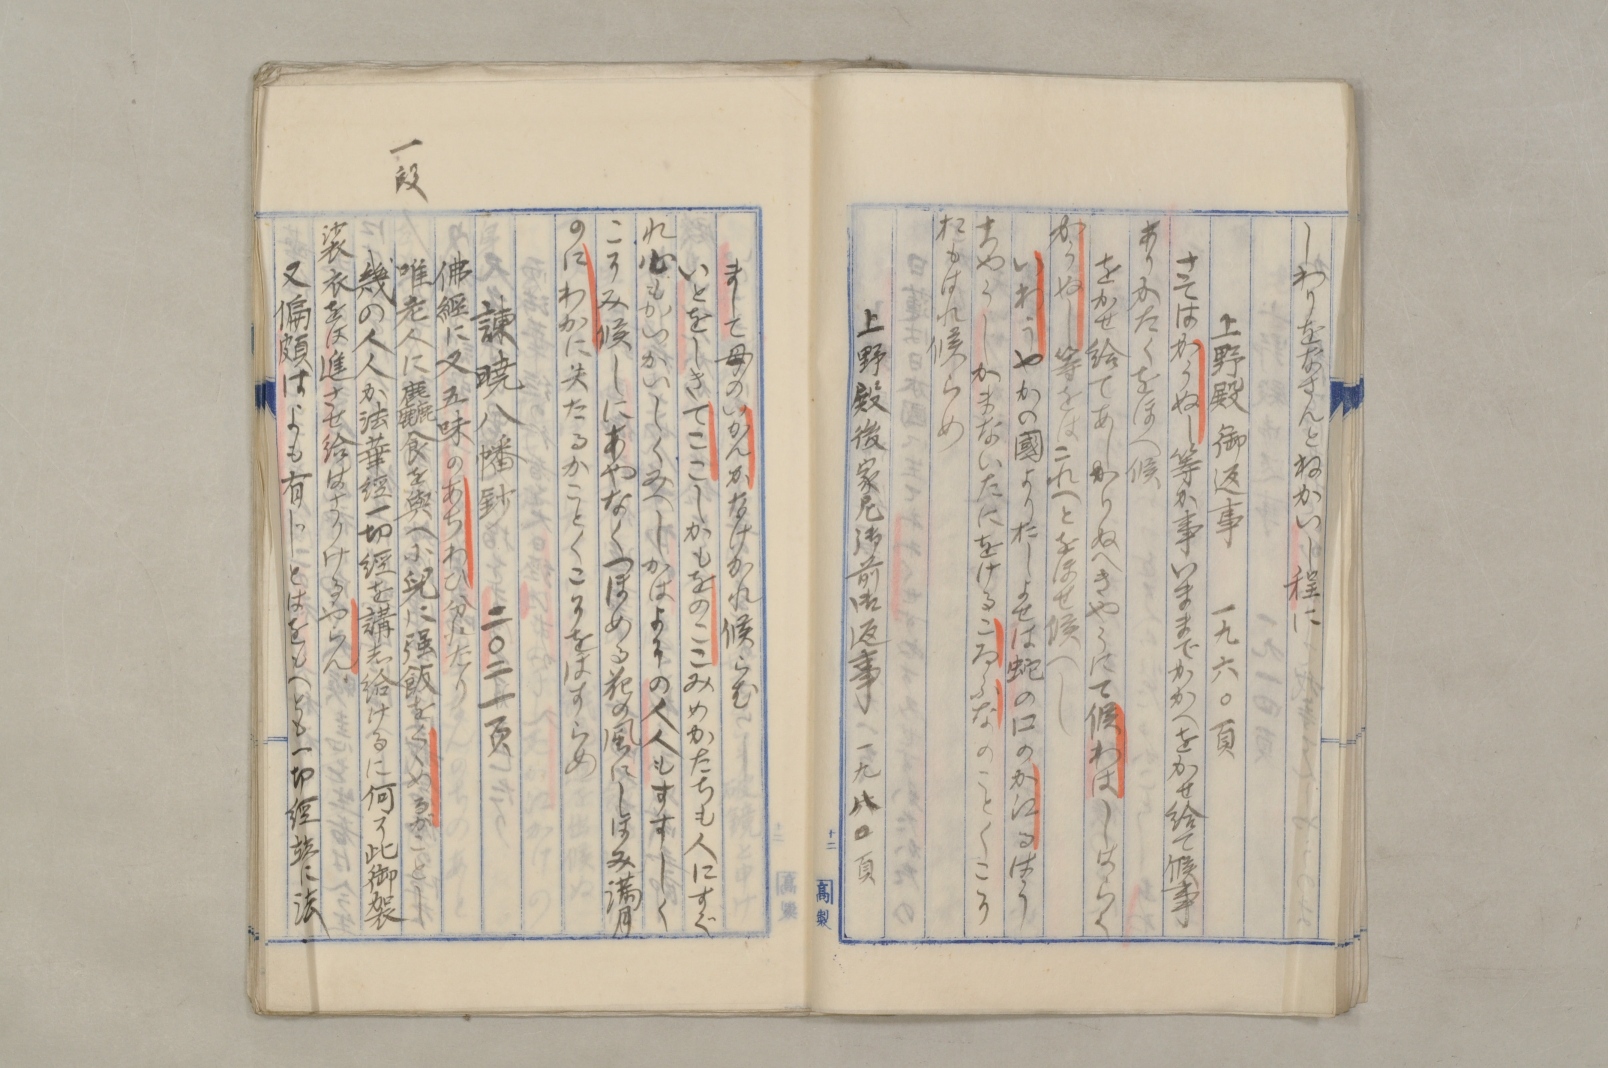 しわりをなさんとねかいし程に
上野殿御返事　一九六〇頁
さてはかうぬし等か事いままでかかへをかせ給て候事
ありかたくをほへ候
をかせ給てあしかりぬへきやうにて候わはしばらく
かうぬし等をはこれへとをほせ候へし
いわうやかの國よりたしよせは蛇の口のかゑるはう
ちやうしかまないたにをけるこゐふなのことくこそ
おもはれ候らめ
上野殿後家尼御前御返事　一九八〇頁
まして母のいかんかなけかれ候らむ
いとをしきてここしかもをのここみめかたちも人にすぐ
れ心もかいかいしくみへしかはよその人人もすすしく
こそみ候しにあやなくつほめる花の風にしほみ満月
のにわかに失たるかことくこそをはすらめ
諫暁八幡鈔　二〇二一頁
佛經に又五味のあちわひ分れたり
一段
唯老人に麁食を與へ小兒に强飯をくゝめるがことし
幾の人人か法華經一切經を講志給けるに何そ此御袈
裟衣をは進させ給はさりけるやらん
又偏頗はよも有しとはをもへとも一切經並に法
十二
髙製